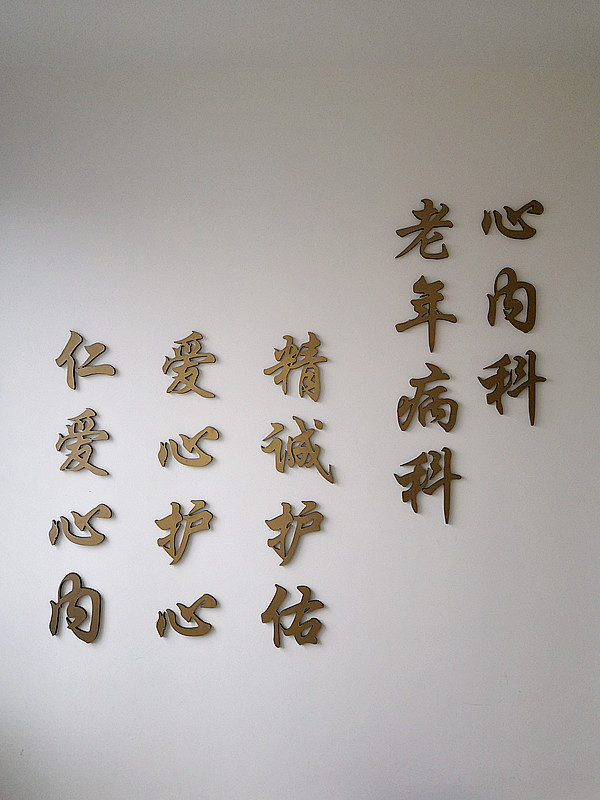 心内科
老年病科
精诚护佑
爱心护心
仁爱心内